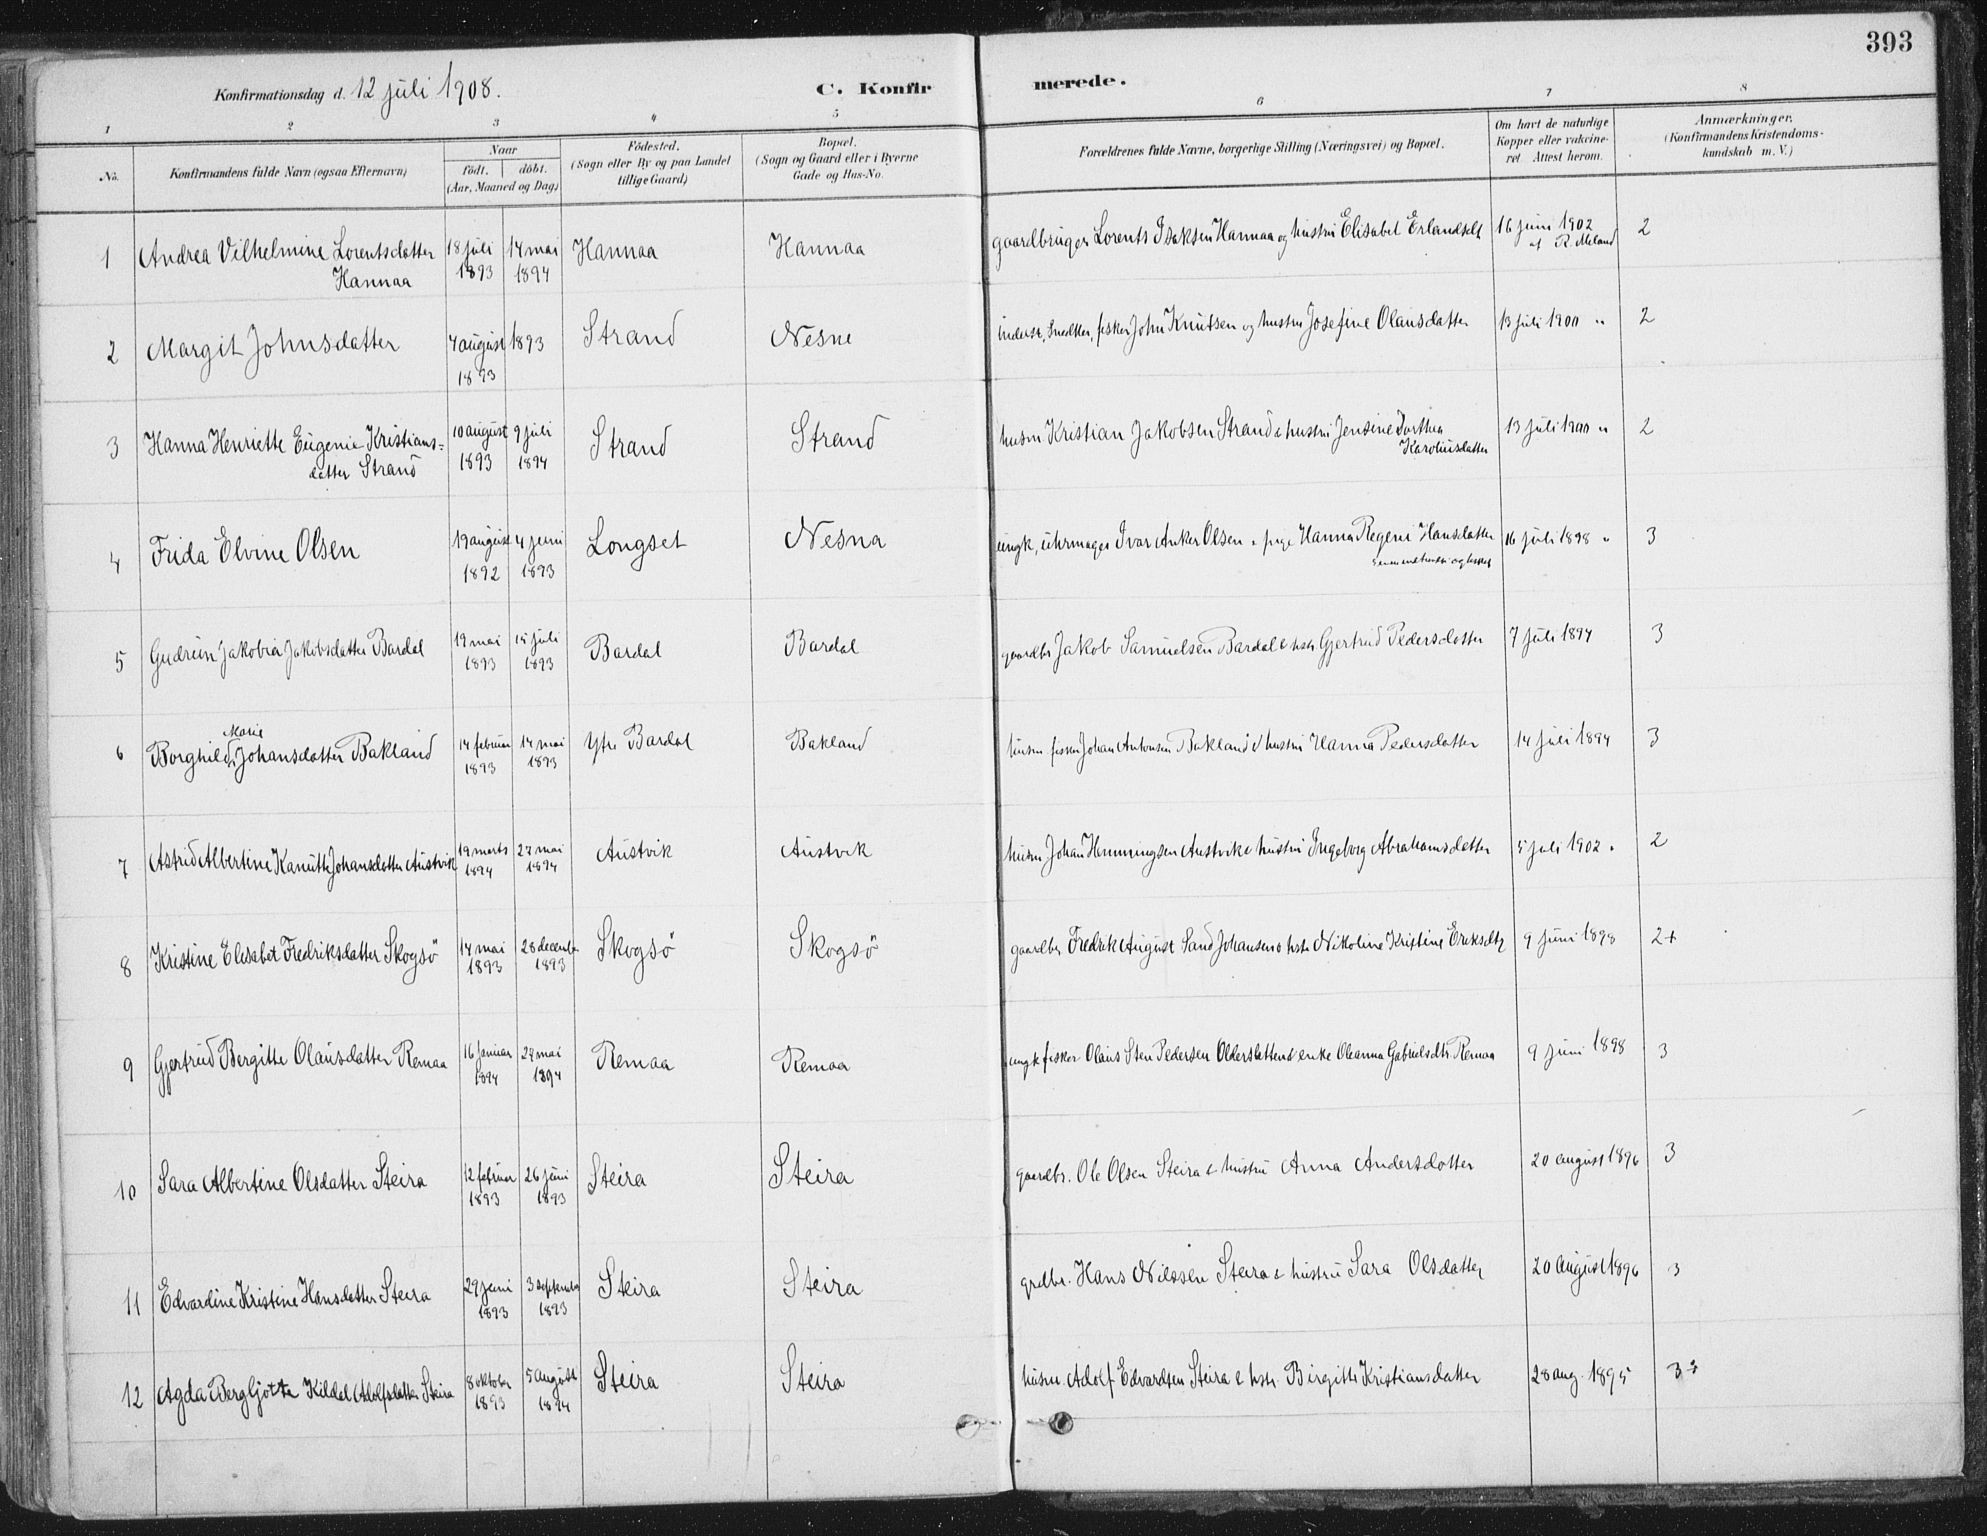 393
Konfirmationsdag d. 12 juli 1908.
C. Konfir merede.
1 2 3 4 5 6 7 8
No.
Konfirmandens fulde Navn (ogsaa Efternavn)
Naar
født. døbt.
(Aar, Maaned og Dag)
Fødested.
(Sogn eller By og paa Landet
tillige Gaard)
Bopæl.
(Sogn og Gaard eller i Byerne
Gade og Hus-No.
Forældrenes fulde Navne, borgerlige Stilling (Næringsvei) og Bopæl.
Om havt de naturlige
Kopper eller vakcine-
ret. Attest herom.
Anmærkninger.
(Konfirmandens Kristendoms-
kundskab m. V.)
1 Andrea Vilhelmine Lorentsdatter 18 juli 14 mai Hannaa Hannaa gaardbruger Lorents Isaksen Hannaa og hustru Elisabet Erlandsdt 16 juni 1902 2
Hannaa 1893 1894 af R. Meland
2 Margit Johnsdatter 4 august 1893 Strand Nesne inderst, Snedker, fisker John Knutsen og hustru Josefine Olausdatter 13 juli 1900 " 2
1893
3 Hanna Henriette Eugenie Kristians= 10 august 9 juli Strand Strand husm Kristian Jakobsen Strand & hustru Jensine Dorthea 13 juli 1900 " 2
datter Strand 1893 1894 Karoliusdatter
4 Frida Elvine Olsen 19 august 4 juni Longset Nesna ungk, uhrmager Ivar Anker Olsen & pige Hanna Regine Hansdatter 16 juli 1898 " 3
1892 1893
5 Gudrun Jakobia Jakobsdatter Bardal 19 mai 15 juli Bardal Bardal gaardbr Jakob Samuelsen Bardal & hstr. Gjertrud Pedersdatter 7 juli 1894 3
1893 1893
Marie
6 Borghild Johansdatter Bakland 14 februar 14 mai Ytre Bardal Bakland husm fisker Johan Antonsen Bakland & hustru Hanna Pedersdatter 14 juli 1894 3
1893 1893
7 Astrid Albertine Kanutte Johansdatter Austvik 19 marts 27 mai Austvik Austvik husm Johan Hemmingsen Austvik & hustru Ingeborg Abrahamsdatter 5 juli 1902 " 2
1894 1894
8 Kristine Elisabet Fredriksdatter Skogsö 14 mai 28 decembr Skogsö Skogsö gaardbr Fredrik August Sand Johansen & hstr Nikoline Kristine Eriksdtr 9 juni 1898 2+
1893 1893
9 Gjertrud Bergitte Olausdatter Remaa 16 januar 27 mai Remaa Remaa ungk fisker Olaus Sten Pedersen Oldersletten & enke Oleanna Gabrielsdtr Remaa 9 juni 1898 3
1894 1894
10 Sara Albertine Olsdatter Steira 12 februar 26 juni Steira Steira gaardbr. Ole Olsen Steira & hustru Anna Andersdatter 20 august 1896 3
1893 1893
11 Edvardine Kristine Hansdatter Steira 29 juni 3 september Steira Steira grdbr. Hans Nilssen Steira & hustru Sara Olsdatter 20 august 1896 3
1893 1893
12 Agda Bergljotta Kildal Adolfsdatter Steira 8 oktober 5 august Steira Steira husm Adolf Edvardsen Steira & hstr. Birgitte Kristiansdatter 28 aug. 1895 3
1893 1894